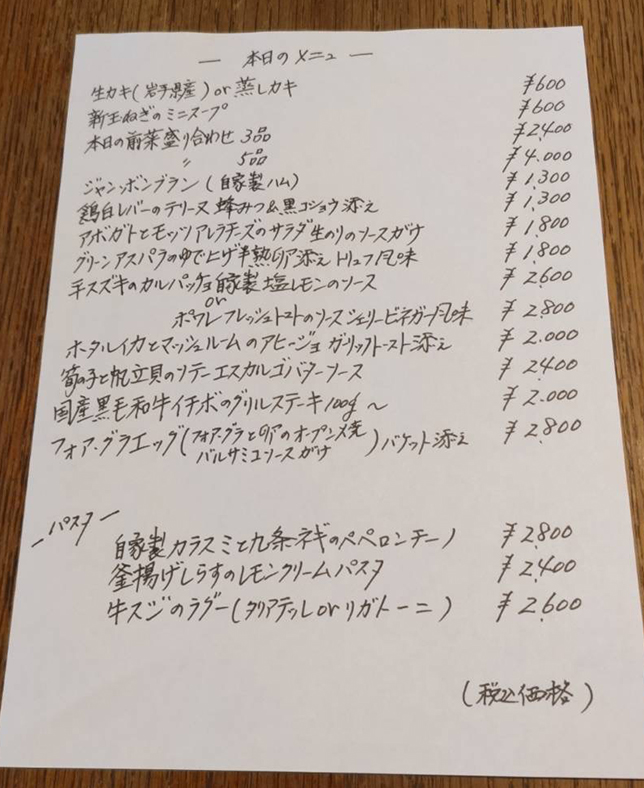 ― 本日のメニュー ―
生カキ(岩手県産) or 蒸しカキ ¥600
新玉ねぎのミニスープ ¥600
本日の前菜盛り合わせ 3品 ¥2,400
〃 5品 ¥4,000
ジャンボンブラン (自家製ハム) ¥1,300
鶏白レバーのテリーヌ 蜂みつ&黒コショウ添え ¥1,300
アボガドとモッツアレラチーズのサラダ 生のりのソースがけ ¥1,800
グリーンアスパラのゆで上げ 半熟卵添え トリュフ風味 ¥1,800
平スズキのカルパッチョ 自家製 塩レモンのソース ¥2,600
or
ポワレ フレッシュトマトのソース シェリービネガー風味 ¥2,800
ホタルイカとマッシュルームのアヒージョ ガーリックトースト添え ¥2,000
筍の子と帆立貝のソテー エスカルゴバターソース ¥2,400
国産黒毛和牛イチボのグリルステーキ 100g 〜 ¥2,000
フォア・グラエッグ (フォア・グラと卵のオープン焼 バルサミコソースがけ) バケット添え ¥2,800
― パスタ ―
自家製カラスミと九条ネギのペペロンチーノ ¥2,800
釜揚げしらすのレモンクリームパスタ ¥2,400
牛スジのラグー (タリアテッレ or リガトーニ) ¥2,600
(税込価格)